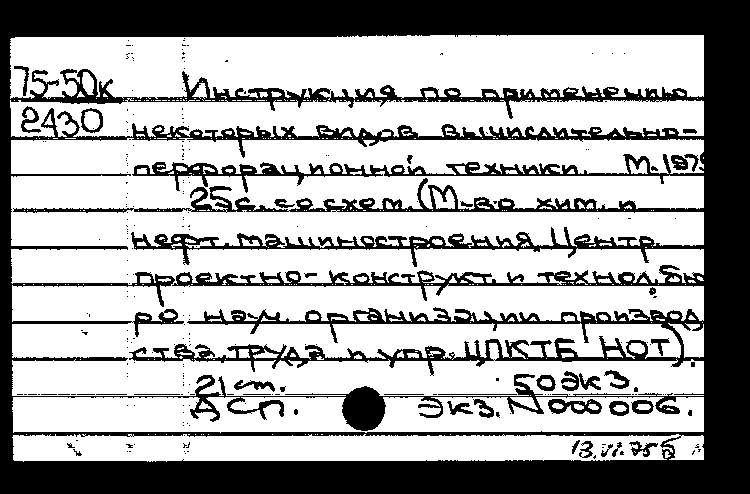 75-50к Инструкция по применению
2430 некоторых видов вычислительно-
перфорационной техники. М., 1975
25с. со схем. (М-во хим. и
нефт. машиностроения. Центр.
проектно-конструкт. и технол. бю
ро науч. организации производ
ства, труда и упр. ЦПКТБ НОТ).
21 cm. 50экз.
ДСП. Экз. N000006.
13.VI.75